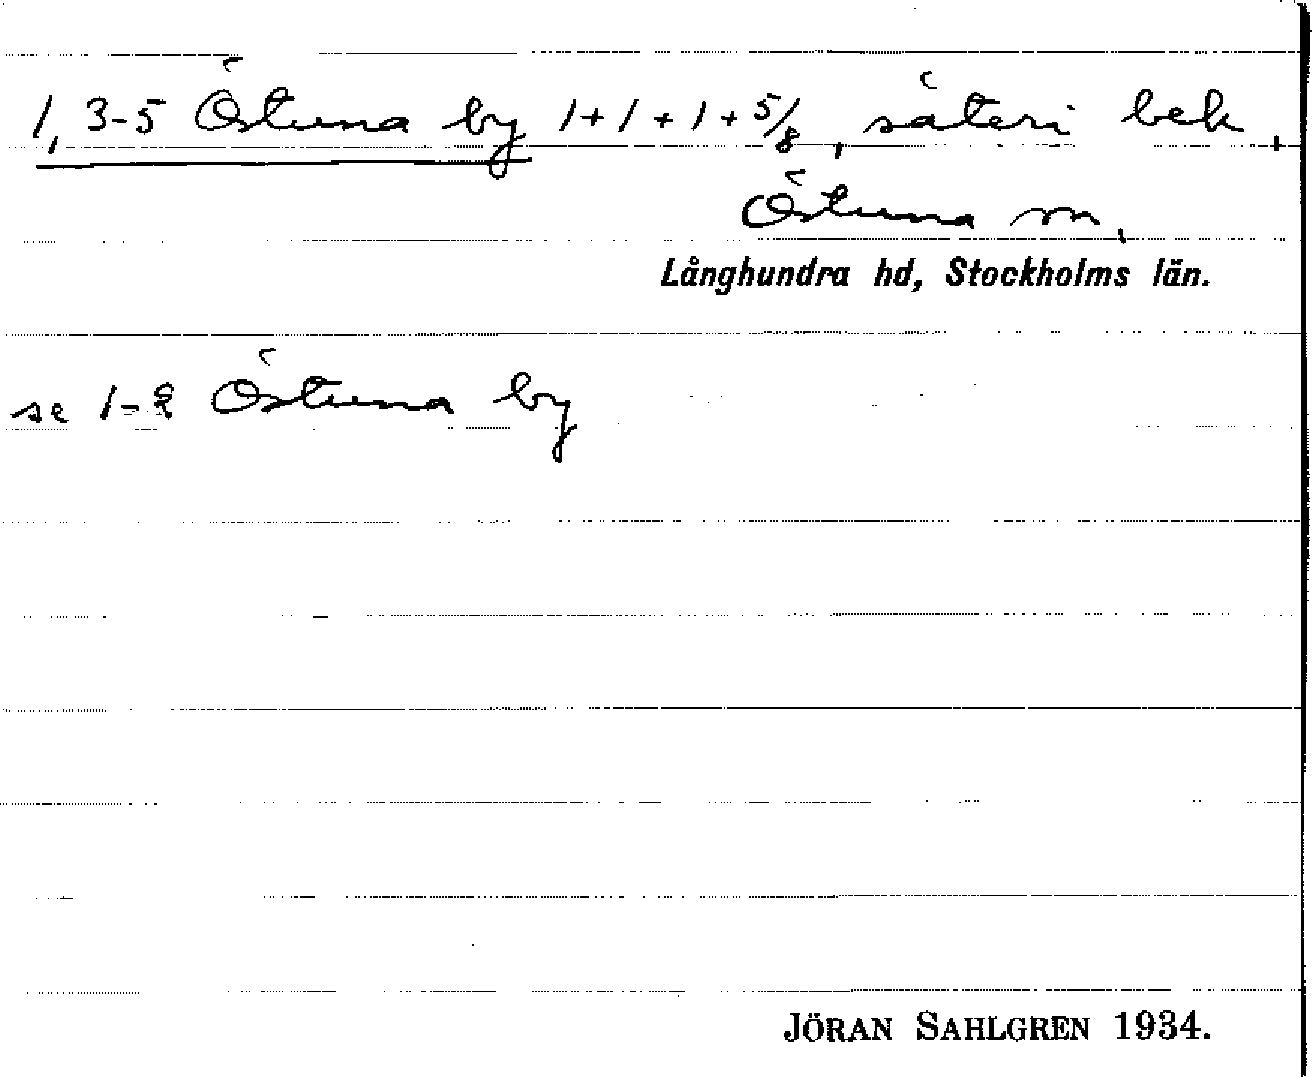 1, 3-5 Östuna by 1+1+1+5/8, säteri bek,
Östuna sn,
Långhundra hd, Stockholms län.
se 1-2 Östuna by
JÖRAN SAHLGREN 1934.